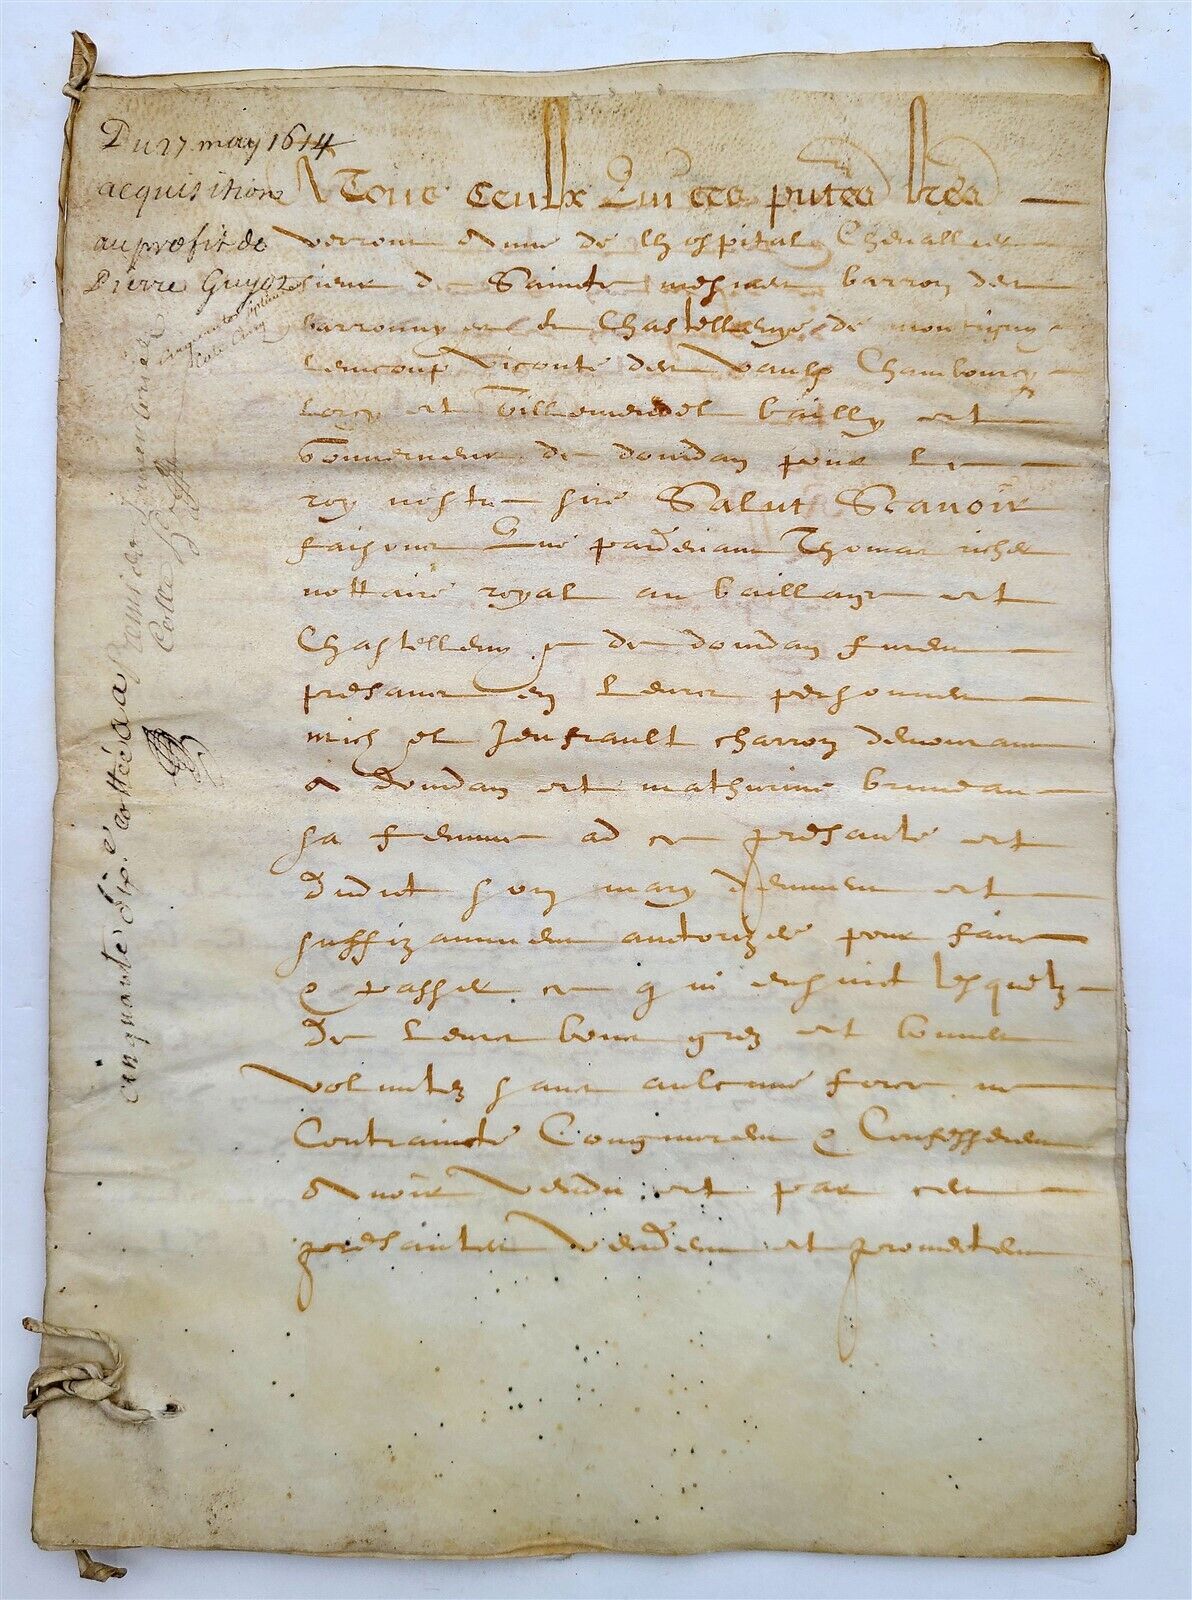 Du 27 may 1614
acquisition
au profit de
Pierre Guyot
A Tous ceulx Qui ces pntes lres
verront Anne de lhospital Chevallier
sieur de Saincte mesmes barron des
barronnyes et Chastellenye de montigny
Lencoup Viconte des Vaulx Chambourcy
Lorcy et Villemendel bailly et
Gouverneur de dourdan pour Le
roy nostre sire Salut Scavoir
faisons Que pardevant Thomas richer
nottaire royal au baillage et
Chastelleny de dourdan furent
presans en Leurs personnes
michel Jeufrault charron demourant
A dourdan et mathurine bruneau
sa femme ad ce presante et
dudict son mary deuement et
suffizamment auctorizee pour faire
& passer ce qui ensuict lesquelz
De Leurs bons grez et bonnes
voluntez sans aulcune force ne
Contraincte Congnurent & Confesserent
Avoir vendu et par ces
presantes vendent et promettent
cinquante six.e cottée aa